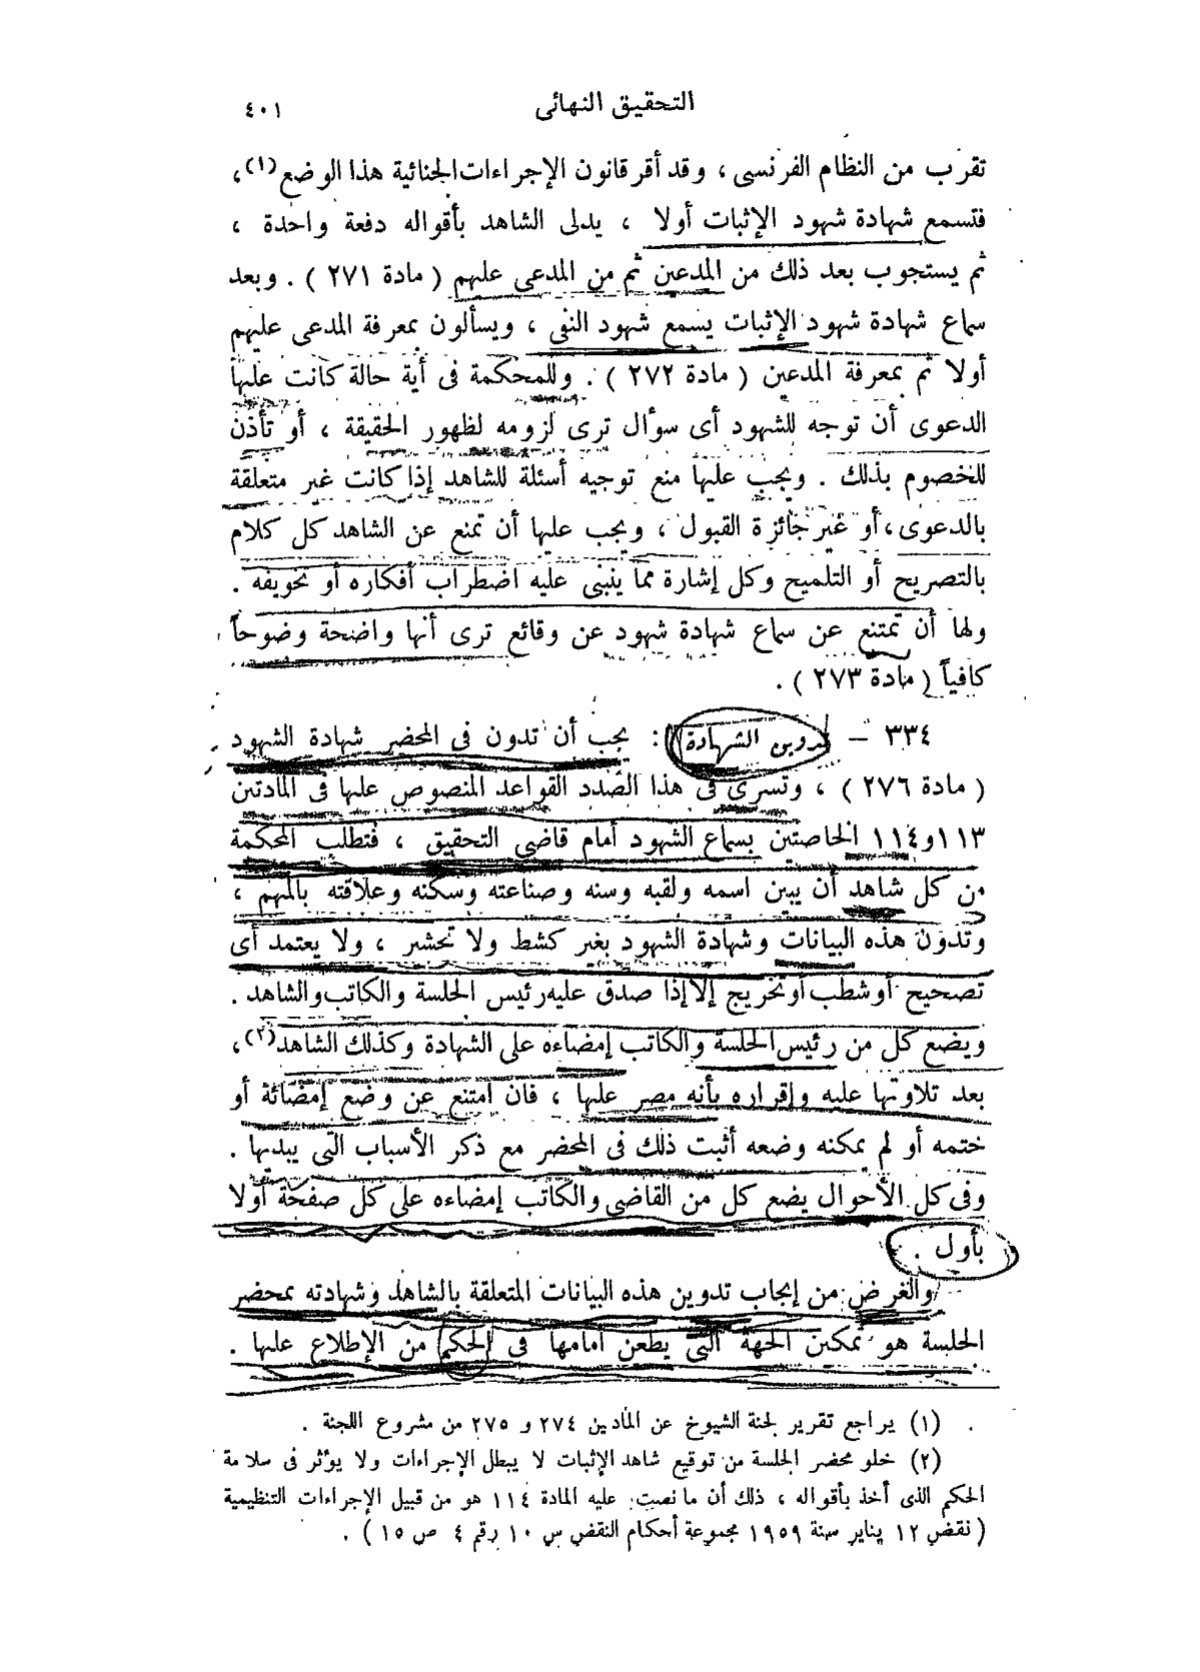 التحقيق النهائى ٤٠١
تقرب من النظام الفرنسى ، وقد أقر قانون الإجراءات الجنائية هذا الوضع (١) ،
فتسمع شهادة شهود الإثبات أولا ، يدلى الشاهد بأقواله دفعة واحدة ،
ثم يستجوب بعد ذلك من المدعين ثم من المدعى عليهم ( مادة ٢٧١ ) . وبعد
سماع شهادة شهود الإثبات يسمع شهود النفى ، ويسألون بمعرفة المدعى عليهم
أولا ثم بمعرفة المدعين ( مادة ٢٧٢ ) . وللمحكمة فى أية حالة كانت عليها
الدعوى أن توجه للشهود أى سؤال ترى لزومه لظهور الحقيقة ، أو تأذن
للخصوم بذلك . ويجب عليها منع توجيه أسئلة للشاهد إذا كانت غير متعلقة
بالدعوى ، أو غير جائزة القبول ، ويجب عليها أن تمنع عن الشاهد كل كلام
بالتصريح أو التلميح وكل إشارة مما ينبنى عليه اضطراب أفكاره أو تخويفه .
ولها أن تمتنع عن سماع شهادة شهود عن وقائع ترى أنها واضحة وضوحاً
كافياً ( مادة ٢٧٣ ) .
٣٣٤ – تدوين الشهادة : يجب أن تدون فى المحضر شهادة الشهود
( مادة ٢٧٦ ) ، وتسرى فى هذا الصدد القواعد المنصوص عليها فى المادتين
١١٣ و ١١٤ الخاصتين بسماع الشهود أمام قاضى التحقيق ، فتطلب المحكمة
من كل شاهد أن يبين اسمه ولقبه وسنه وصناعته وسكنه وعلاقته بالمتهم ،
وتدون هذه البيانات وشهادة الشهود بغير كشط ولا تحشير ، ولا يعتمد أى
تصحيح أو شطب أو تخريج إلا إذا صدق عليه رئيس الجلسة والكاتب والشاهد .
ويضع كل من رئيس الجلسة والكاتب إمضاءه على الشهادة وكذلك الشاهد (٢) ،
بعد تلاوتها عليه وإقراره بأنه مصر عليها ، فان امتنع عن وضع إمضائة أو
ختمه أو لم يمكنه وضعه أثبت ذلك فى المحضر مع ذكر الأسباب التى يبديها .
وفى كل الأحوال يضع كل من القاضى والكاتب إمضاءه على كل صفحة أولا
بأول .
والغرض من إيجاب تدوين هذه البيانات المتعلقة بالشاهد وشهادته بمحضر
الجلسة هو تمكين الجهة التى يطعن أمامها فى الحكم من الإطلاع عليها .
(١) يراجع تقرير لجنة الشيوخ عن المادين ٢٧٤ و ٢٧٥ من مشروع اللجنة .
(٢) خلو محضر الجلسة من توقيع شاهد الإثبات لا يبطل الإجراءات ولا يؤثر فى سلامة
الحكم الذى أخذ بأقواله ، ذلك أن ما نصت عليه المادة ١١٤ هو من قبيل الإجراءات التنظيمية
( نقض ١٢ يناير سنة ١٩٥٩ مجموعة أحكام النقض س ١٠ رقم ٤ ص ١٥ ) .